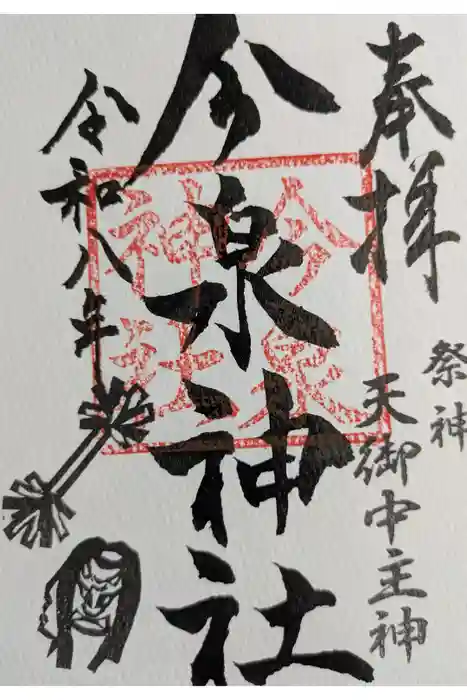 奉拝
祭神
天御中主神
今泉神社
令和八年
今泉
神社